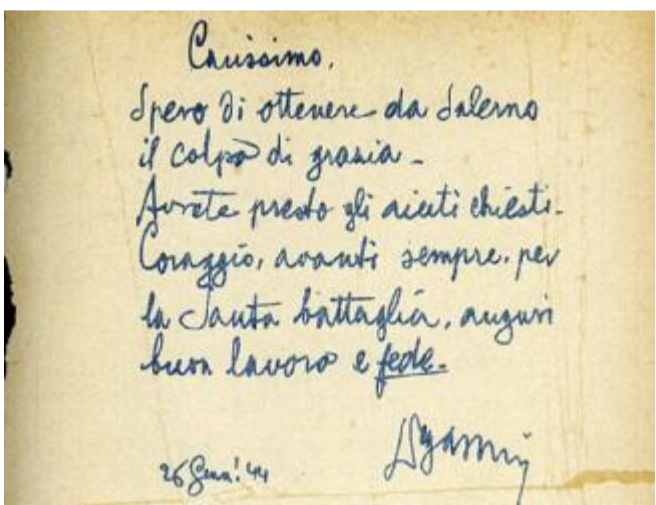 Carissimo,
Spero di ottenere da Salerno
il colpo di grazia -
Avrete presto gli aiuti chiesti.
Coraggio, avanti sempre, per
la Santa battaglia, auguri
buon lavoro e fede.
26 Genn! 44